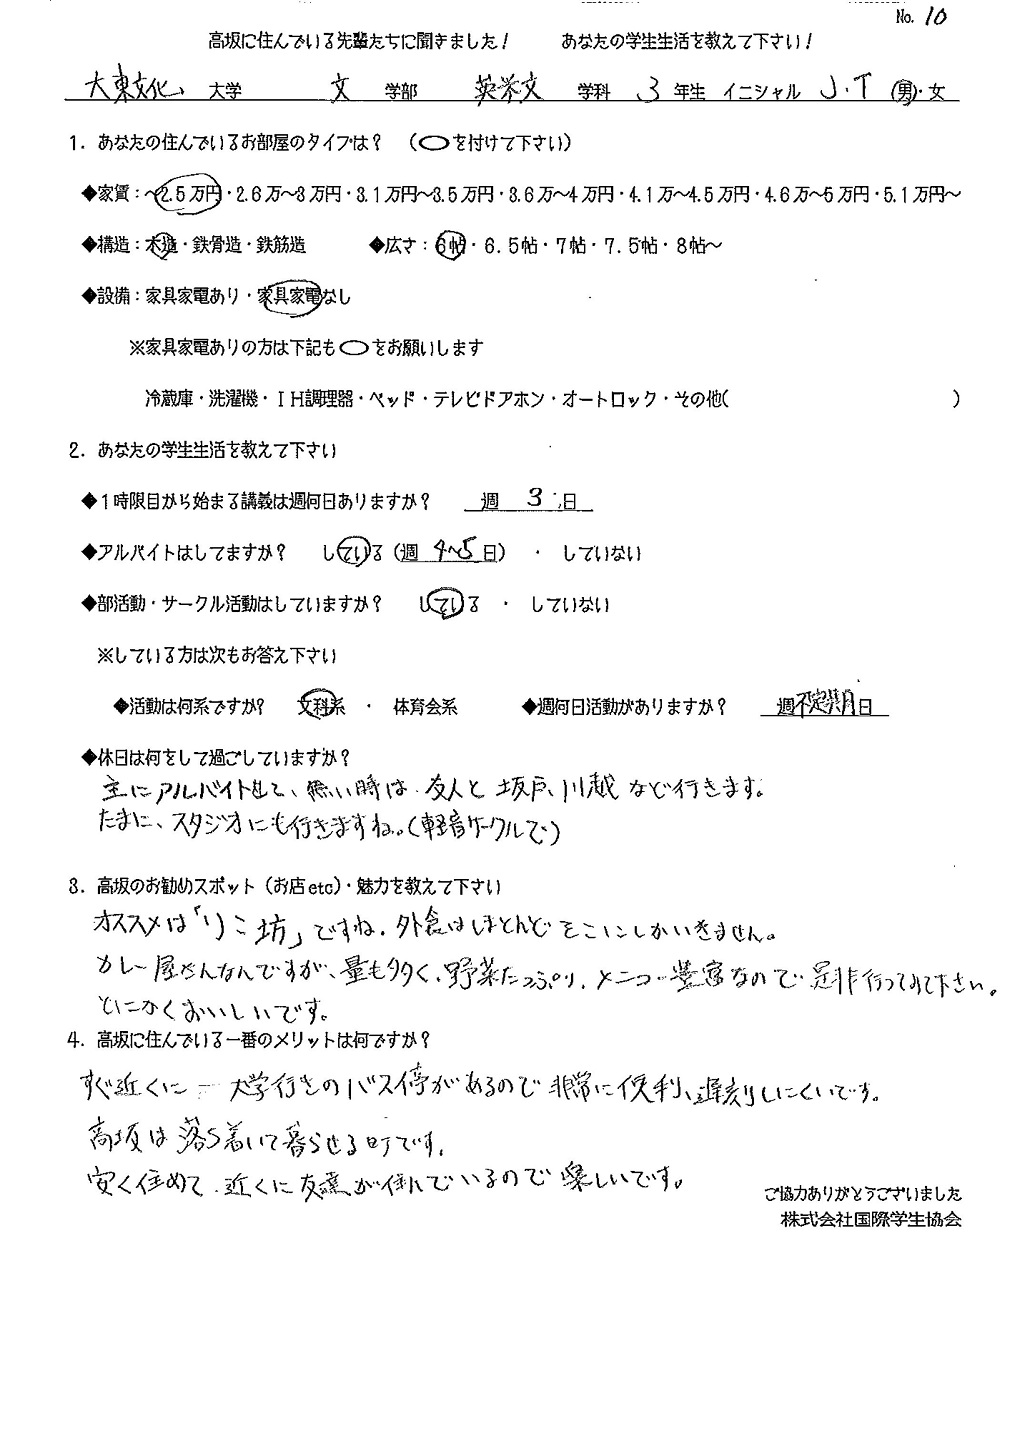 No. 10
高坂に住んでいる先輩たちに聞きました！ あなたの学生生活を教えて下さい！
大東文化 大学 文 学部 英米文 学科 3 年生 イニシャル J.T (男)・女
1. あなたの住んでいるお部屋のタイプは？ （○を付けて下さい）
◆家賃：～2.5万円・2.6万～3万円・3.1万円～3.5万円・3.6万～4万円・4.1万～4.5万円・4.6万～5万円・5.1万円～
◆構造：木造・鉄骨造・鉄筋造 ◆広さ：6帖・6.5帖・7帖・7.5帖・8帖～
◆設備：家具家電あり・家具家電なし
※家具家電ありの方は下記も○をお願いします
冷蔵庫・洗濯機・IH調理器・ベッド・テレビドアホン・オートロック・その他( )
2. あなたの学生生活を教えて下さい
◆1時限目から始まる講義は週何日ありますか？ 週 3 日
◆アルバイトはしてますか？ している（週 4~5 日） ・ していない
◆部活動・サークル活動はしていますか？ している ・ していない
※している方は次もお答え下さい
◆活動は何系ですか？ 文科系 ・ 体育会系 ◆週何日活動がありますか？ 週不定期日
◆休日は何をして過ごしていますか？
主にアルバイトをして、無い時は友人と坂戸、川越など行きます。
たまに、スタジオにも行きますね。(軽音サークルで)
3. 高坂のお勧めスポット（お店etc）・魅力を教えて下さい
オススメは「りこ坊」ですね。外食はほとんどそこにしかいきません。
カレー屋さんなんですが、量も多く、野菜たっぷり、メニュー豊富なので是非行ってみて下さい。
とにかくおいしいです。
4. 高坂に住んでいる一番のメリットは何ですか？
すぐ近くに大学行きのバス停があるので非常に便利、遅刻しにくいです。
高坂は落ち着いて暮らせる町です。
安く住めて、近くに友達が住んでいるので楽しいです。
ご協力ありがとうございました
株式会社国際学生協会